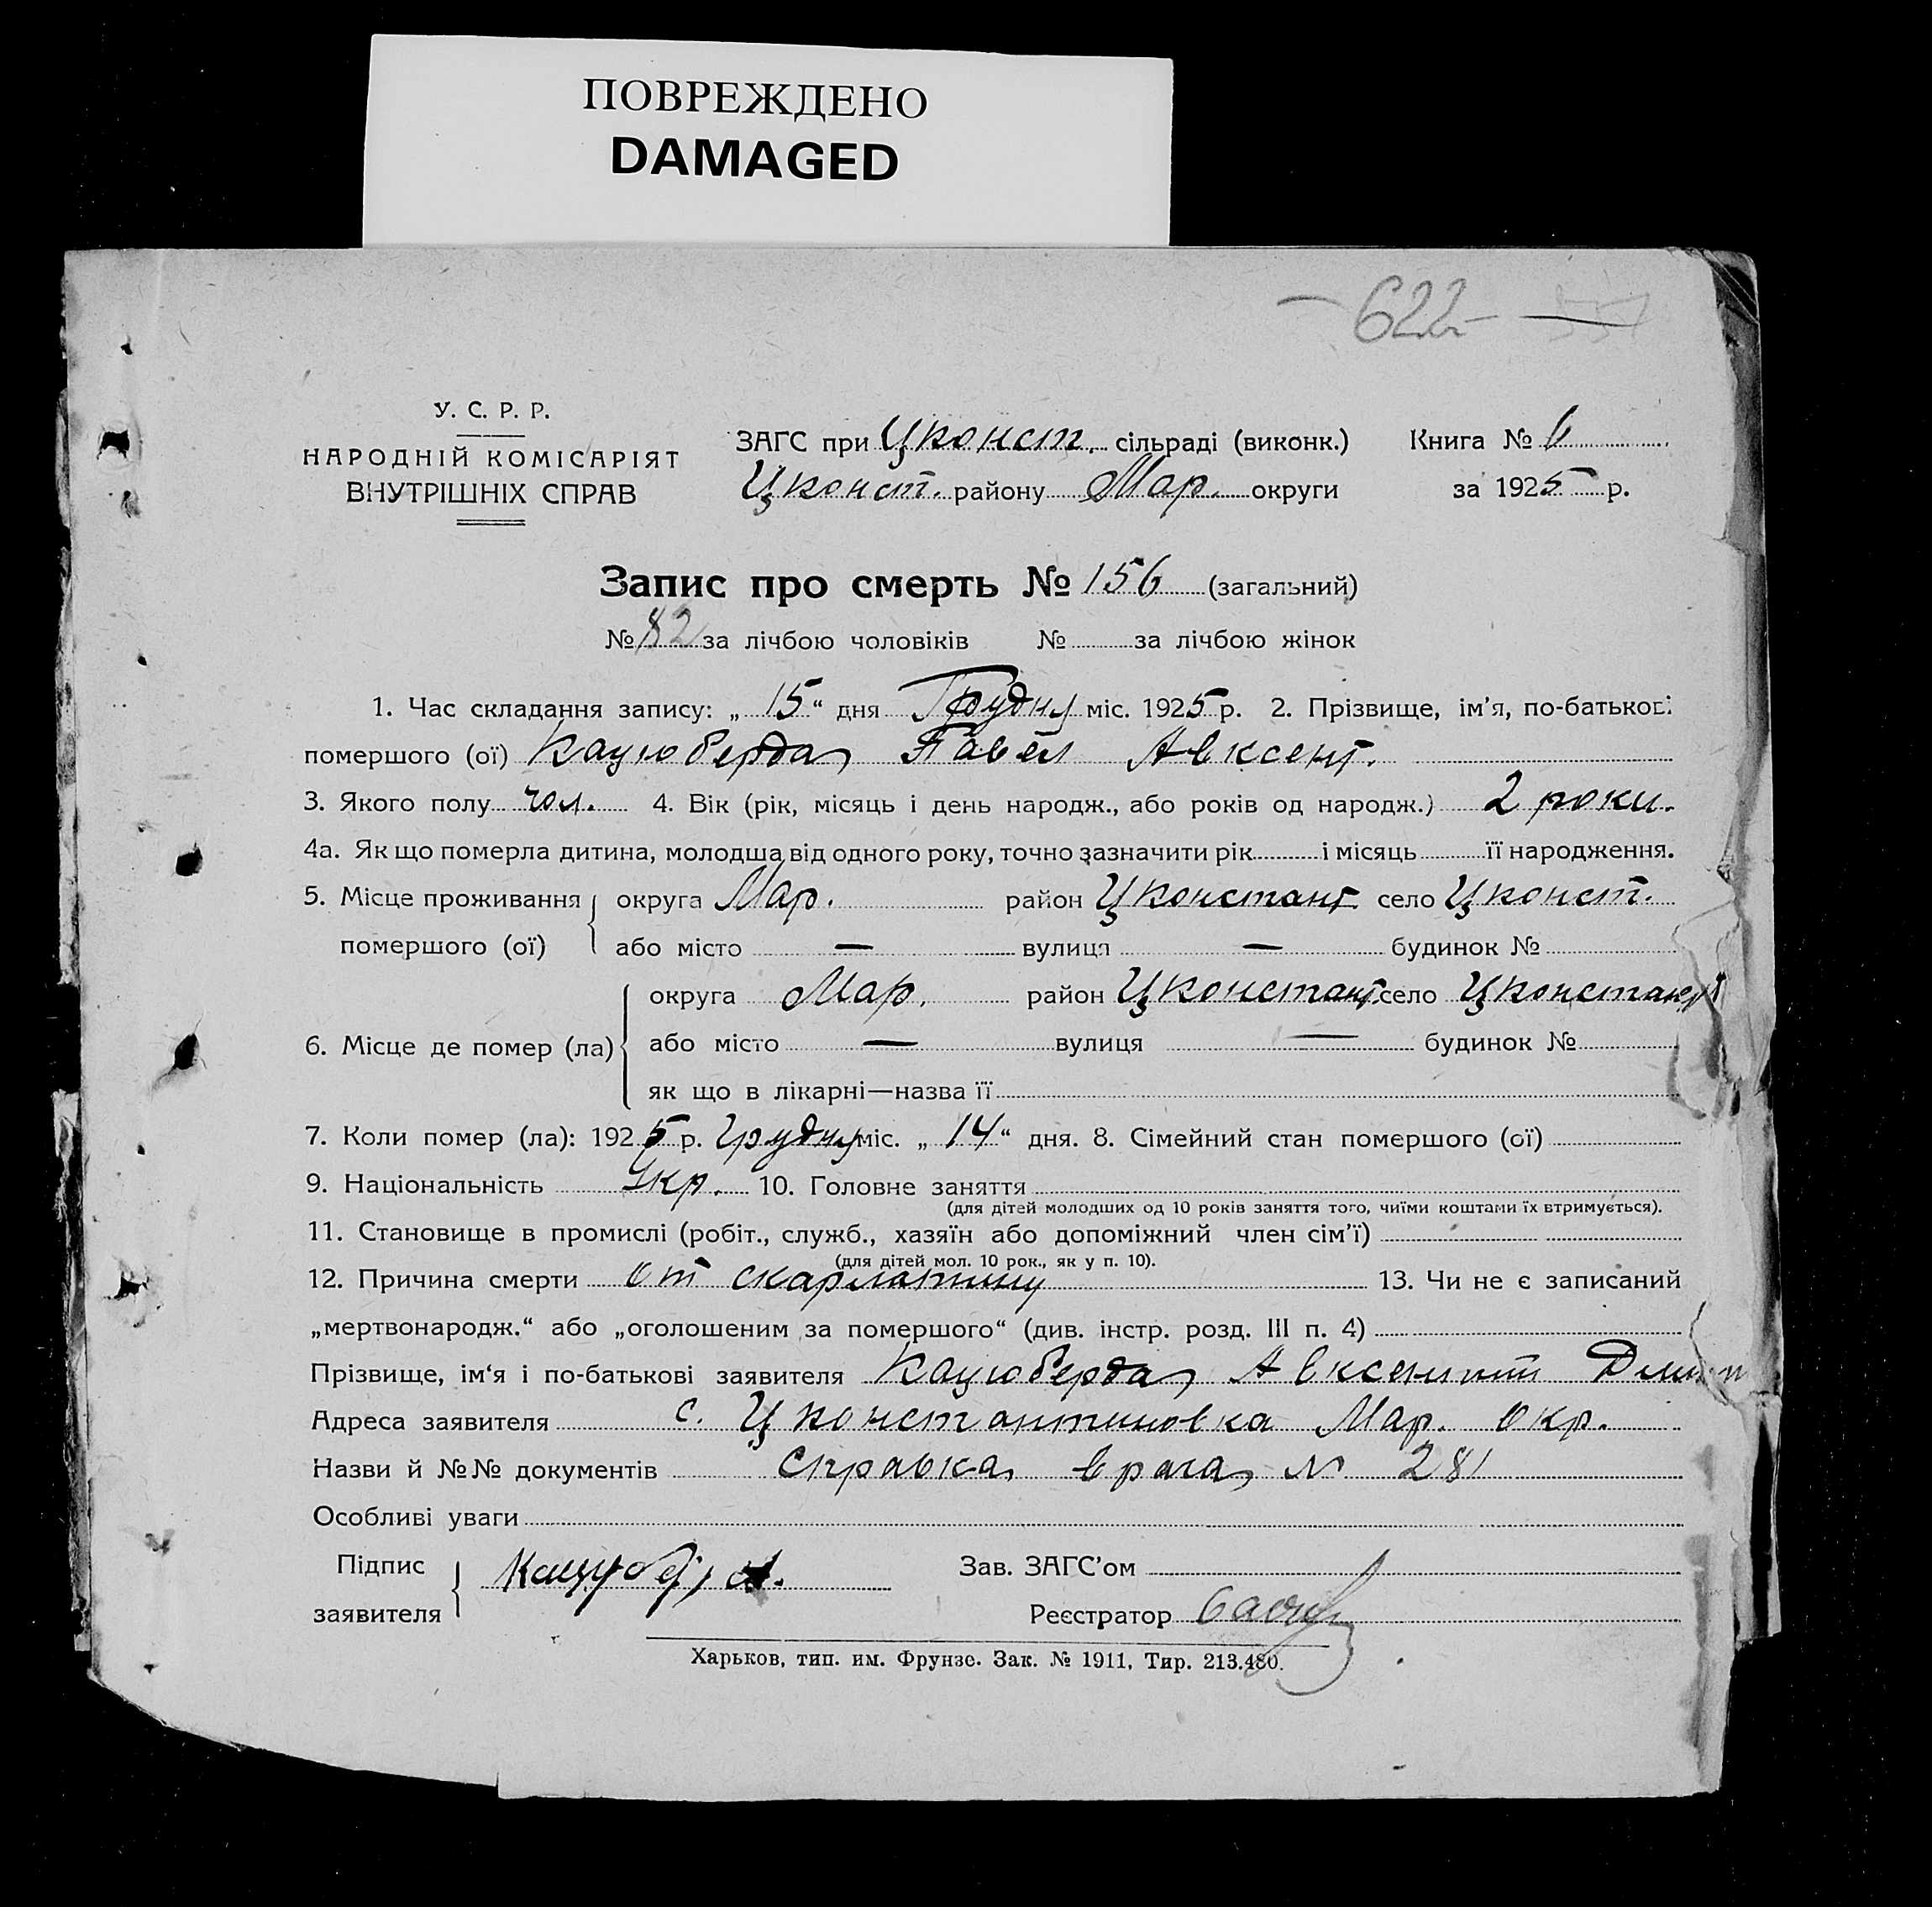 ПОВРЕЖДЕНО
DAMAGED
622
У. С. Р. Р.
НАРОДНІЙ КОМІСАРІЯТ
ВНУТРІШНІХ СПРАВ
ЗАГС при Цконст. сільраді (виконк.) Книга № 6
Цконст. району Мар. округи за 1925 р.
Запис про смерть № 156 (загальний)
№ 82 за лічбою чоловіків № за лічбою жінок
1. Час складання запису: „15“ дня Грудня міс. 1925 р. 2. Прізвище, ім'я, по-батькові
помершого (ої) Кацюберда Павел Авксент.
3. Якого полу чол. 4. Вік (рік, місяць і день народж., або років од народж.) 2 роки.
4а. Як що померла дитина, молодша від одного року, точно зазначити рік і місяць її народження.
5. Місце проживання округа Мар. район Цконстант. село Цконст.
помершого (ої) або місто — вулиця — будинок №
округа Мар. район Цконстант. село Цконстант
6. Місце де помер (ла) або місто — вулиця — будинок №
як що в лікарні—назва її
7. Коли помер (ла): 1925 р. Грудня міс. „14“ дня. 8. Сімейний стан помершого (ої)
9. Національність Укр. 10. Головне заняття
(для дітей молодших од 10 років заняття того, чиїми коштами їх втримується).
11. Становище в промислі (робіт., служб., хазяїн або допоміжний член сім'ї)
(для дітей мол. 10 рок., як у п. 10).
12. Причина смерти от скарлатину 13. Чи не є записаний
„мертвонародж.“ або „оголошеним за помершого“ (див. інстр. розд. III п. 4)
Прізвище, ім'я і по-батькові заявителя Кацюберда Авксентий
Адреса заявителя с. Цконстантиновка Мар. окр.
Назви й №№ документів справка врача № 281
Особливі уваги
Підпис
заявителя
Зав. ЗАГС'ом
Реєстратор
Харьков, тип. им. Фрунзе. Зак. № 1911, Тир. 213.480.